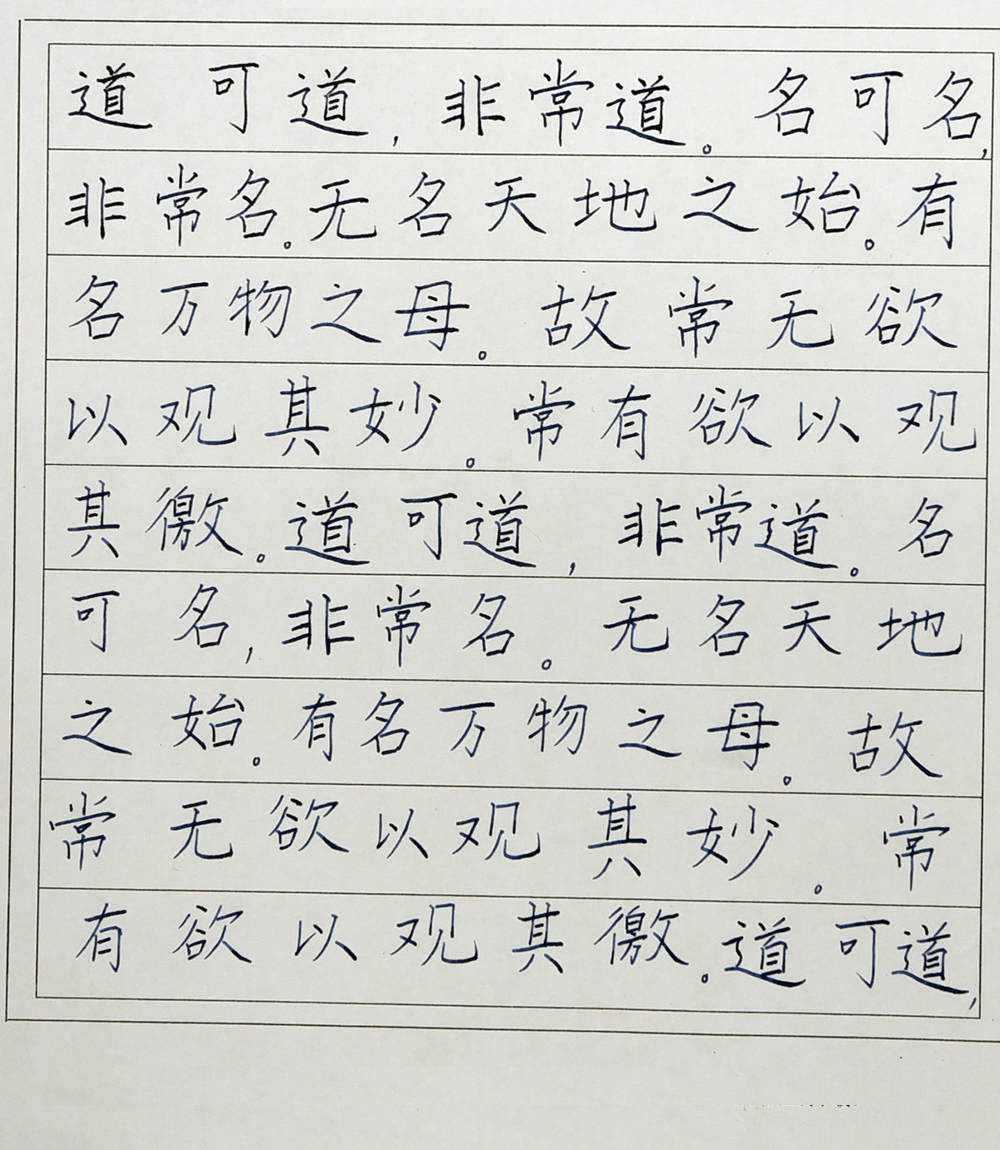 道可道,非常道。名可名,
非常名。无名天地之始。有
名万物之母。故常无欲
以观其妙。常有欲以观
其徼。道可道,非常道。名
可名,非常名。无名天地
之始。有名万物之母。故
常无欲以观其妙。常
有欲以观其徼。道可道,